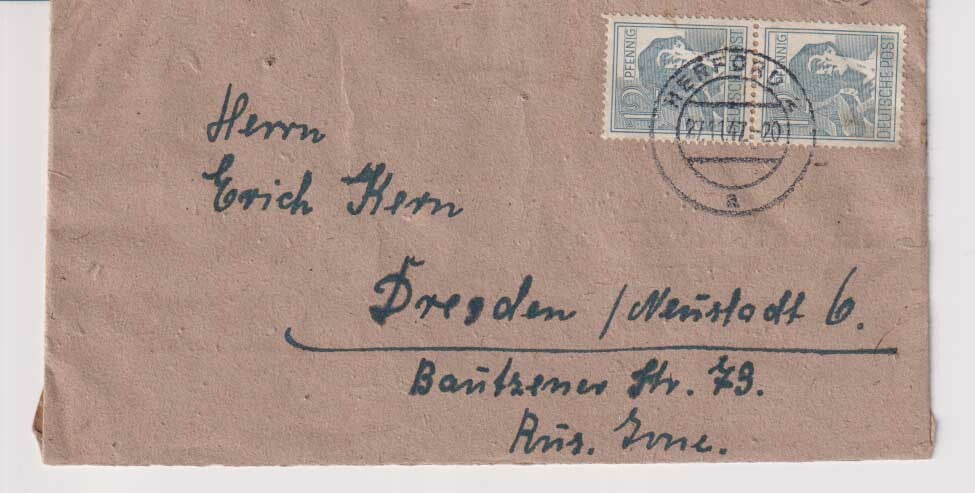 12 PFENNIG
DEUTSCHE POST
HERFORD
27.11.47.-20
a
Herrn
Erich Kern
Dresden / Neustadt 6.
Bautzener Str. 79.
Rus. Zone.